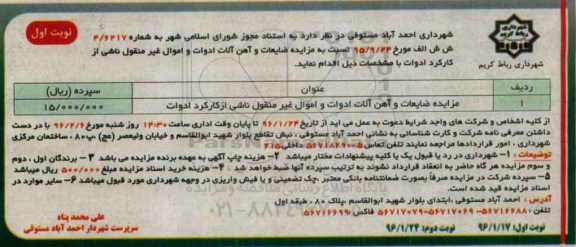 نوبت اول
شهرداری رباط کریم
شهرداری احمد آباد مستوفی در نظر دارد به استناد مجوز شورای اسلامی شهر به شماره ۴/۶۲۱۷
ش ش الف مورخ ۹۵/۹/۲۴ نسبت به مزایده ضایعات و آهن آلات ادوات و اموال غیر منقول ناشی از
کارکرد ادوات با مشخصات ذیل اقدام نماید.
ردیف عنوان سپرده (ریال)
۱ مزایده ضایعات و آهن آلات ادوات و اموال غیر منقول ناشی ازکارکرد ادوات ۱۵/۰۰۰/۰۰۰
از کلیه اشخاص و شرکت های واجد شرایط دعوت به عمل می اید از تاریخ ۹۶/۱/۲۴ تا پایان وقت اداری ساعت ۱۴:۳۰ روز شنبه مورخ ۹۶/۲/۶ با در دست
داشتن معرفی نامه شرکت و کارت شناسائی به نشانی احمد آباد مستوفی ، نبش تقاطع بلوار شهید ابوالقاسم و خیابان ولیعصر (عج) ،پ۸۰ ، ساختمان مرکزی
شهرداری ، امور قراردادها مراجعه نمایند تلفن تماس ۵۶۷۱۸۲۹۰۰۵ داخلی ۲۱۵
توضیحات : ۱- شهرداری در رد یا قبول یک یا کلیه پیشنهادات مختار میباشد ۲- هزینه چاپ آگهی به عهده برنده مزایده می باشد ۳- برندگان اول ، دوم
و سوم مزایده هر گاه حاضر به انعقاد قرارداد نشوند به ترتیب سپرده آنها ضبط خواهد شد ۴- هزینه خرید اسناد مزایده مبلغ ۵۰۰/۰۰۰ ریال میباشد
۵- سپرده شرکت در مزایده صرفاً بصورت ضمانتنامه بانکی معتبر ،چک تضمینی و یا فیش واریزی در وجهه شهرداری مورد قبول میباشد ۶- سایر موارد در
اسناد مزایده قید شده است.
آدرس : احمد آباد مستوفی ،ابتدای بلوار شهید ابوالقاسم ،پلاک ۸۰، طبقه اول
تلفن: ۵۶۷۱۶۶۸۸-۵۶۷۱۷۰۶۹-۵۶۷۱۷۰۷۹ فاکس :۵۶۷۱۶۶۹۹
علی محمد پناه
سرپرست شهردار احمد آباد مستوفی
نوبت اول: ۹۶/۱/۱۷ نوبت دوم: ۹۶/۱/۲۴